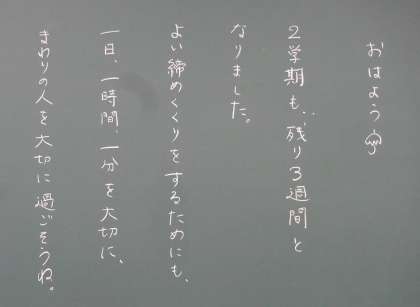 おはよう☂
2学期も、残り3週間と
なりました。
よい締めくくりをするためにも、
一日、一時間、一分を大切に、
まわりの人を大切に過ごそうね。